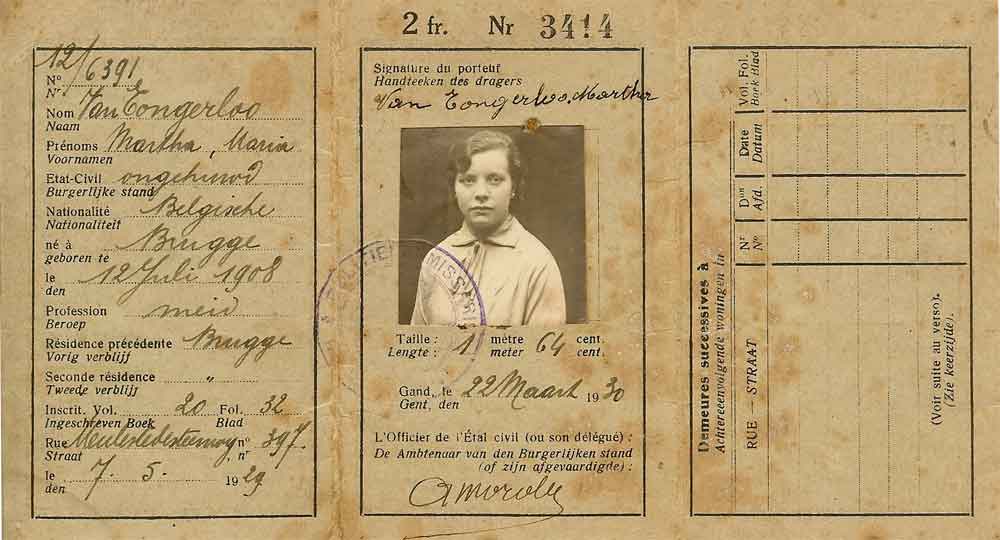 2 fr. Nr 3414
12/6391
No
Nr
Nom Van Tongerloo
Naam
Prénoms Martha, Maria
Voornamen
Etat-Civil ongehuwd
Burgerlijke stand
Nationalité Belgische
Nationaliteit
né à Brugge
geboren te
le 12 Juli 1908
den
Profession meid
Beroep
Résidence précédente Brugge
Vorig verblijf
Seconde résidence "
Tweede verblijf
Inscrit. Vol. 20 Fol. 32
Ingeschreven Boek Blad
Rue no 397
Straat nr
le 7. 5. 1929
den
Signature du porteur
Handteeken des dragers
Van Tongerloo, Martha
Taille : 1 mètre 64 cent.
Lengte : meter cent.
Gand, le 22 Maart 1930
Gent, den
L'Officier de l'État civil (ou son délégué) :
De Ambtenaar van den Burgerlijken stand
(of zijn afgevaardigde) :
Demeures successives à
Achtereenvolgende woningen in
RUE — STRAAT
Nr
No
Don
Afd.
Date
Datum
Vol. Fol.
Boek Blad
(Voir suite au verso).
(Zie keerzijde).